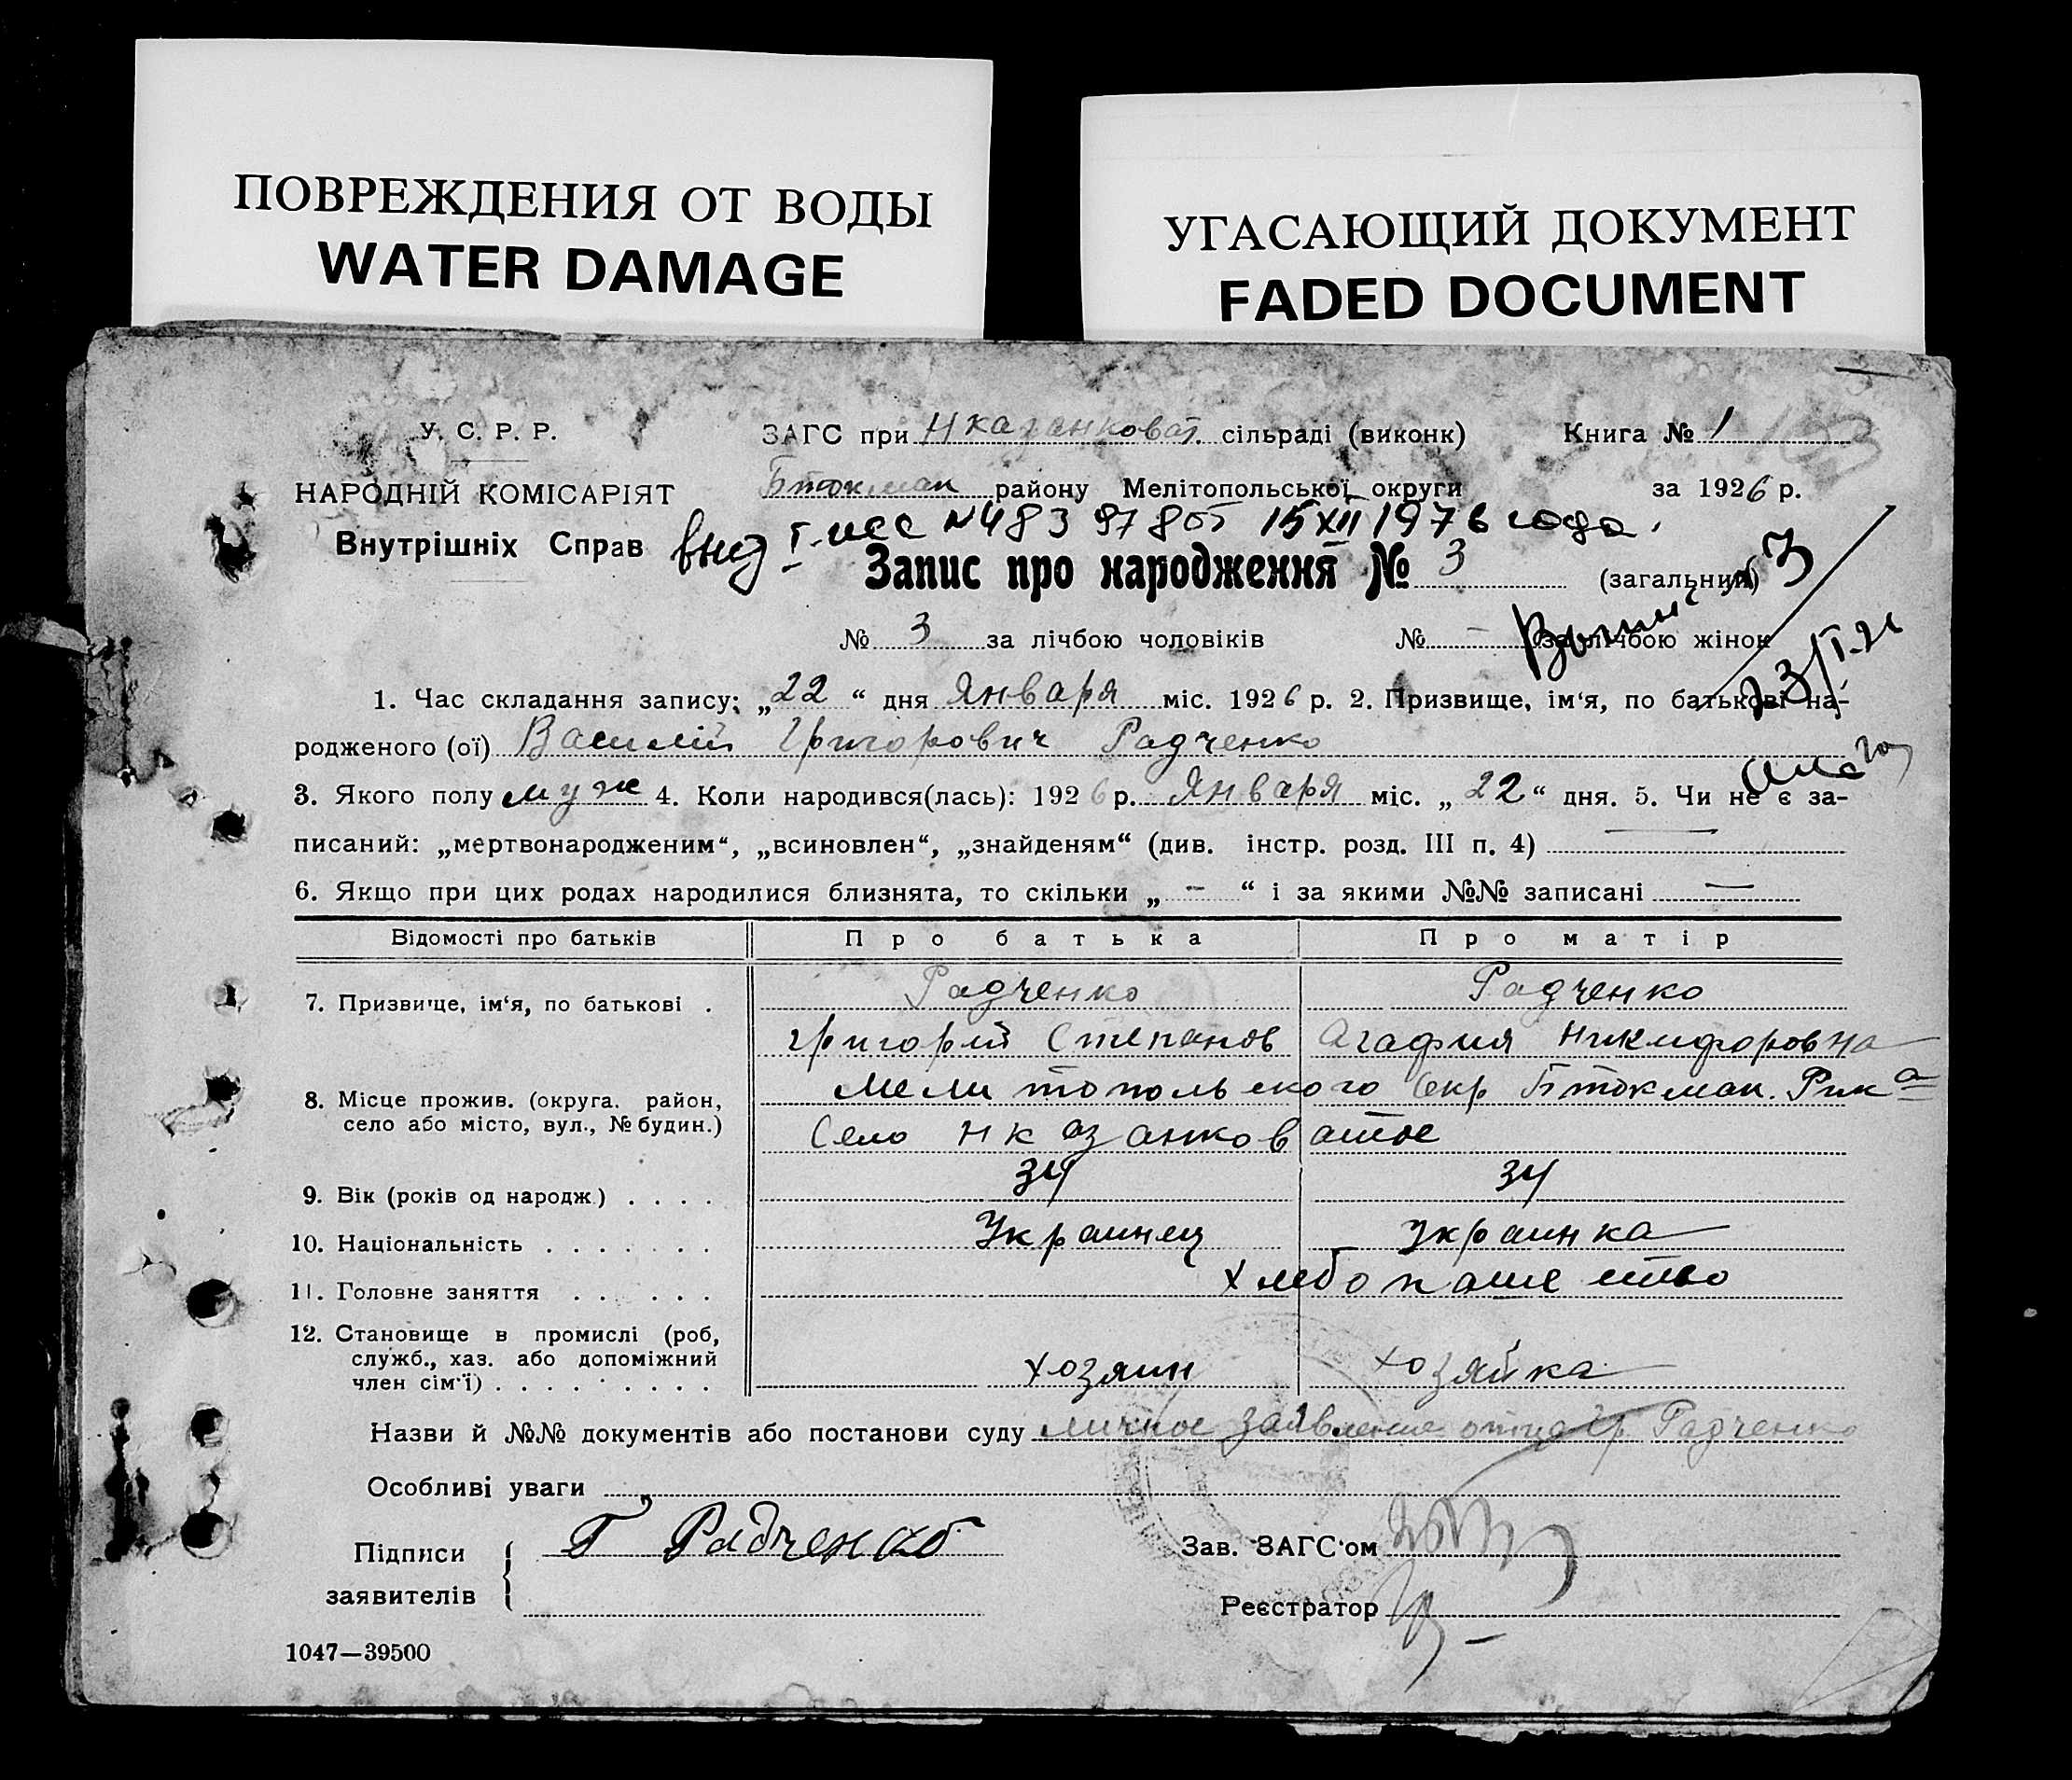 ПОВРЕЖДЕНИЯ ОТ ВОДЫ
WATER DAMAGE
УГАСАЮЩИЙ ДОКУМЕНТ
FADED DOCUMENT
У. С. Р. Р.
ЗАГС при Нказанковат. сільраді (виконк) Книга № 1
НАРОДНІЙ КОМІСАРІЯТ Бтокмак району Мелітопольської округи за 1926 р.
Внутрішніх Справ
15 XII 1976 года.
Запис про народження № 3 (загальний) 3
№ 3 за лічбою чоловіків № – за лічбою жінок
1. Час складання запису; „22“ дня Января міс. 1926 р. 2. Призвище, ім‘я, по батькові на-
родженого (ої) Василій Григорович Радченко
3. Якого полу муж 4. Коли народився(лась): 1926 р. Января міс. „22“ дня. 5. Чи не є за-
писаний: „мертвонародженим“, „всиновлен“, „знайденям“ (див. інстр. розд. III п. 4) —
6. Якщо при цих родах народилися близнята, то скільки „ – “ і за якими №№ записані —
Відомості про батьків Про батька Про матір
7. Призвище, ім‘я, по батькові . Радченко Радченко
Григорій Степанов Агафия Никифоровна
8. Місце прожив. (округа. район, село або місто, вул., № будин.) Мелитопольского Окр Бтокмак. Рик а
Село Нказанковатое
9. Вік (років од народж.) . . . . 34 34
10. Національність . . . . . . . Украинец украинка
11. Головне заняття . . . . . . хлебопашество
12. Становище в промислі (роб,
служб., хаз. або допоміжний
член сім‘ї) . . . . . . . . . хозяин хозяйка
Назви й №№ документів або постанови суду личное заявление отца Гр Радченко
Особливі уваги
Підписи Г Радченко Зав. ЗАГС‘ом
заявителів Реєстратор
1047—39500